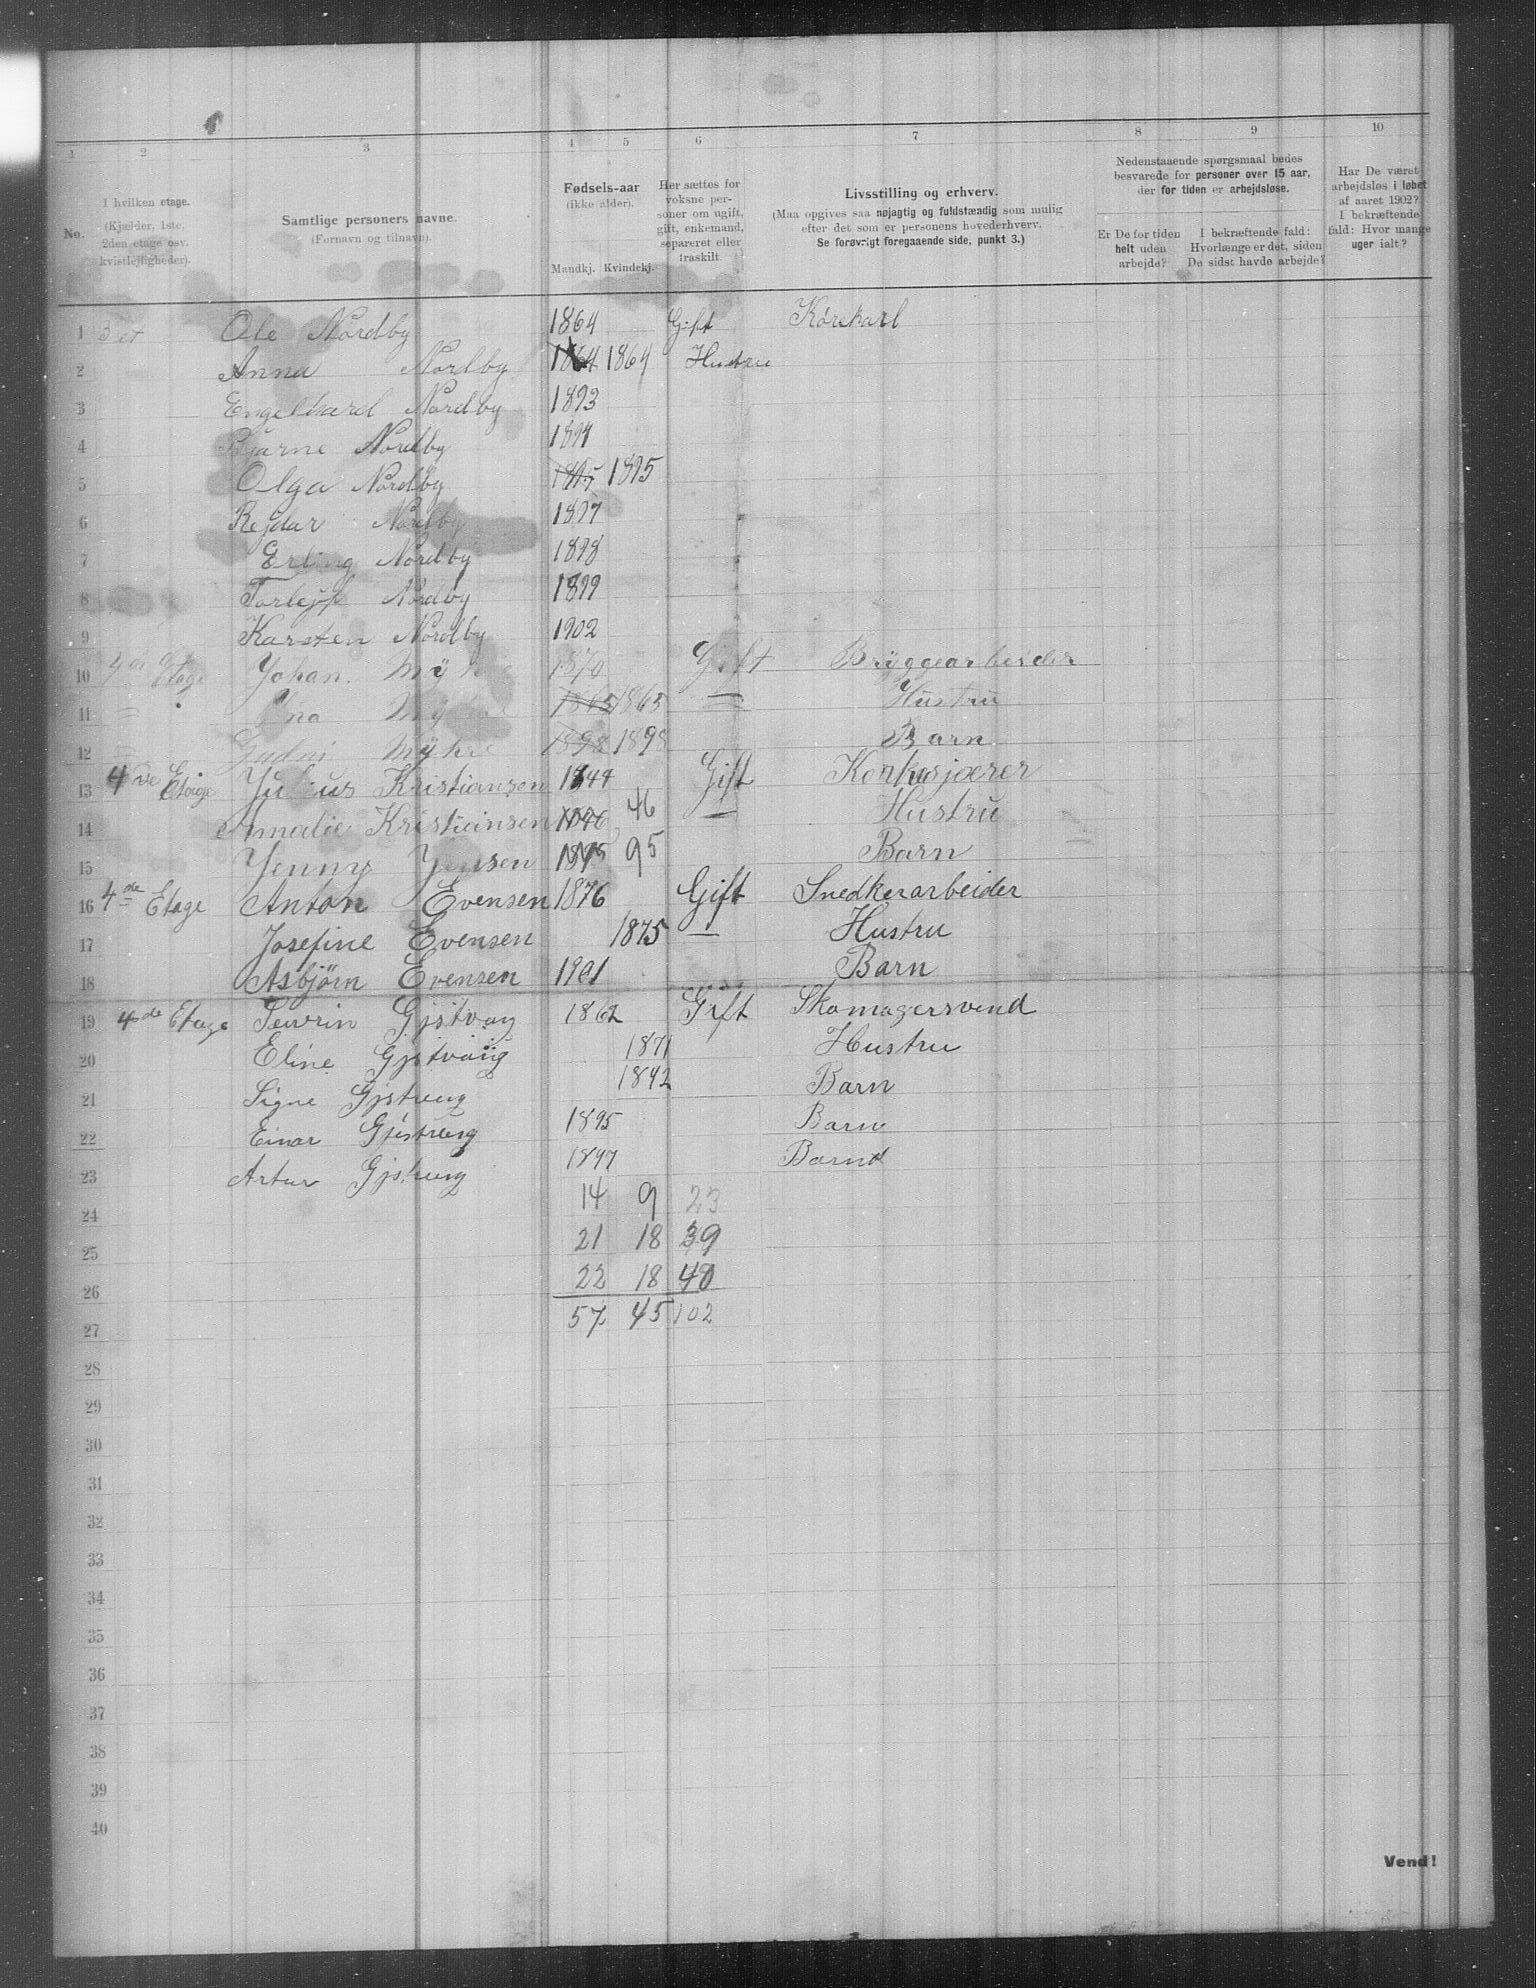 1 2 3 4 5 6 7 8 9 10
No.
I hvilken etage.
(Kjælder, 1ste, 2den etage osv. kvistlejligheder).
Samtlige personers navne.
(Fornavn og tilnavn).
Fødsels-aar
(ikke alder).
Mandkj. Kvindekj.
Her sættes for voksne personer om ugift, gift, enkemand, separeret eller fraskilt.
Livsstilling og erhverv.
(Maa opgives saa nøjagtig og fuldstændig som mulig efter det som er personens hovederhverv.
Se forøvrigt foregaaende side, punkt 3.)
Nedenstaaende spørgsmaal bedes besvarede for personer over 15 aar, der for tiden er arbejdsløse.
Er De for tiden helt uden arbejde?
I bekræftende fald: Hvorlænge er det, siden De sidst havde arbejde?
Har De været arbejdsløs i løbet af aaret 1902? I bekræftende fald: Hvor mange uger ialt?
1 3 et Ole Nordby 1864 Gift Kørekarl
2 Anna Nordby 1864 1864 Hustru
3 Engelhard Nordby 1893
4 Bjarne Nordby 1894
5 Olga Nordby 1895 1895
6 Rejdar Nordby 1897
7 Erling Nordby 1898
8 Torlejf Nordby 1899
9 Karsten Nordby 1902
10 4de Etage Johan Myhre 1870 Gift Bryggearbeider
11 = Myhre 1865 1865 = Hustru
12 = Gudni Myhre 1898 1898 Barn
13 4de Etage Julius Kristiansen 1844 Gift
14 Amalie Kristiansen 1846 46 = Hustru
15 Jenny Jensen 1895 95 Barn
16 4de Etage Anton Evensen 1876 Gift Snedkerarbeider
17 Josefine Evensen 1875 — Hustru
18 Asbjørn Evensen 1901 Barn
19 4de Etage 1862 Gift Skomagersvend
20 Eline 1871 Hustru
21 Signe 1892 Barn
22 Einar 1895 Barn
23 Artur 1897 Barn
24 14 9 23
25 21 18 39
26 22 18 40
27 57 45 102
28
29
30
31
32
33
34
35
36
37
38
39
40
Vend!